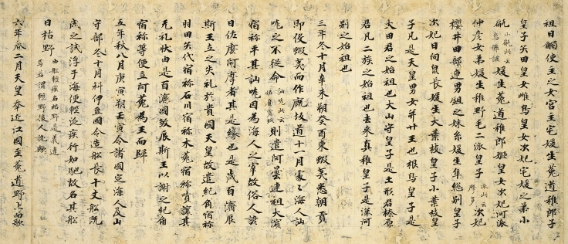 祖日觸使主之女宮主宅媛生菟道稚郎子
皇子矢田皇女雌鳥皇女次妃宅媛之弟小
媛生菟道稚郎姬皇女次妃河派
仲彥女弟媛生稚野毛二派皇子次妃
櫻井田部連男鉏之妹糸媛生隼総別皇子
次妃日向泉長媛生大葉枝皇子小葉枝皇
子凡是天皇男女并廿王也根鳥皇子是
大田君之始祖也大山守皇子是土形君榛原
君凡二族之始祖也去来真稚皇子是深河
別之始祖也
三年冬十月辛未朔癸酉東蝦夷悉朝貢
即役蝦夷而作厩坂道十一月處々海人訕
哤之不從命則遣阿曇連祖大濱
宿祢平其訕哤因為海人之宰故俗人諺
曰佐麼阿摩者其是緣也是歳百濟辰
斯王立之失礼於貴國天皇故遣紀角宿祢
羽田矢代宿祢石川宿祢木菟宿祢嘖讓其
无礼狀由是百濟國殺辰斯王以謝之紀角
宿祢等便立阿花為王而歸
五年秋八月庚寅朔壬寅令諸國定海人及山
守部冬十月科伊豆國令造船長十丈船既
成之試浮于海便輕泛疾行如馳故名其船
曰枯野 由船輕疾名枯野是義違焉若謂輕野後人訛歟
六年春二月天皇幸近江國至菟道野上而歌